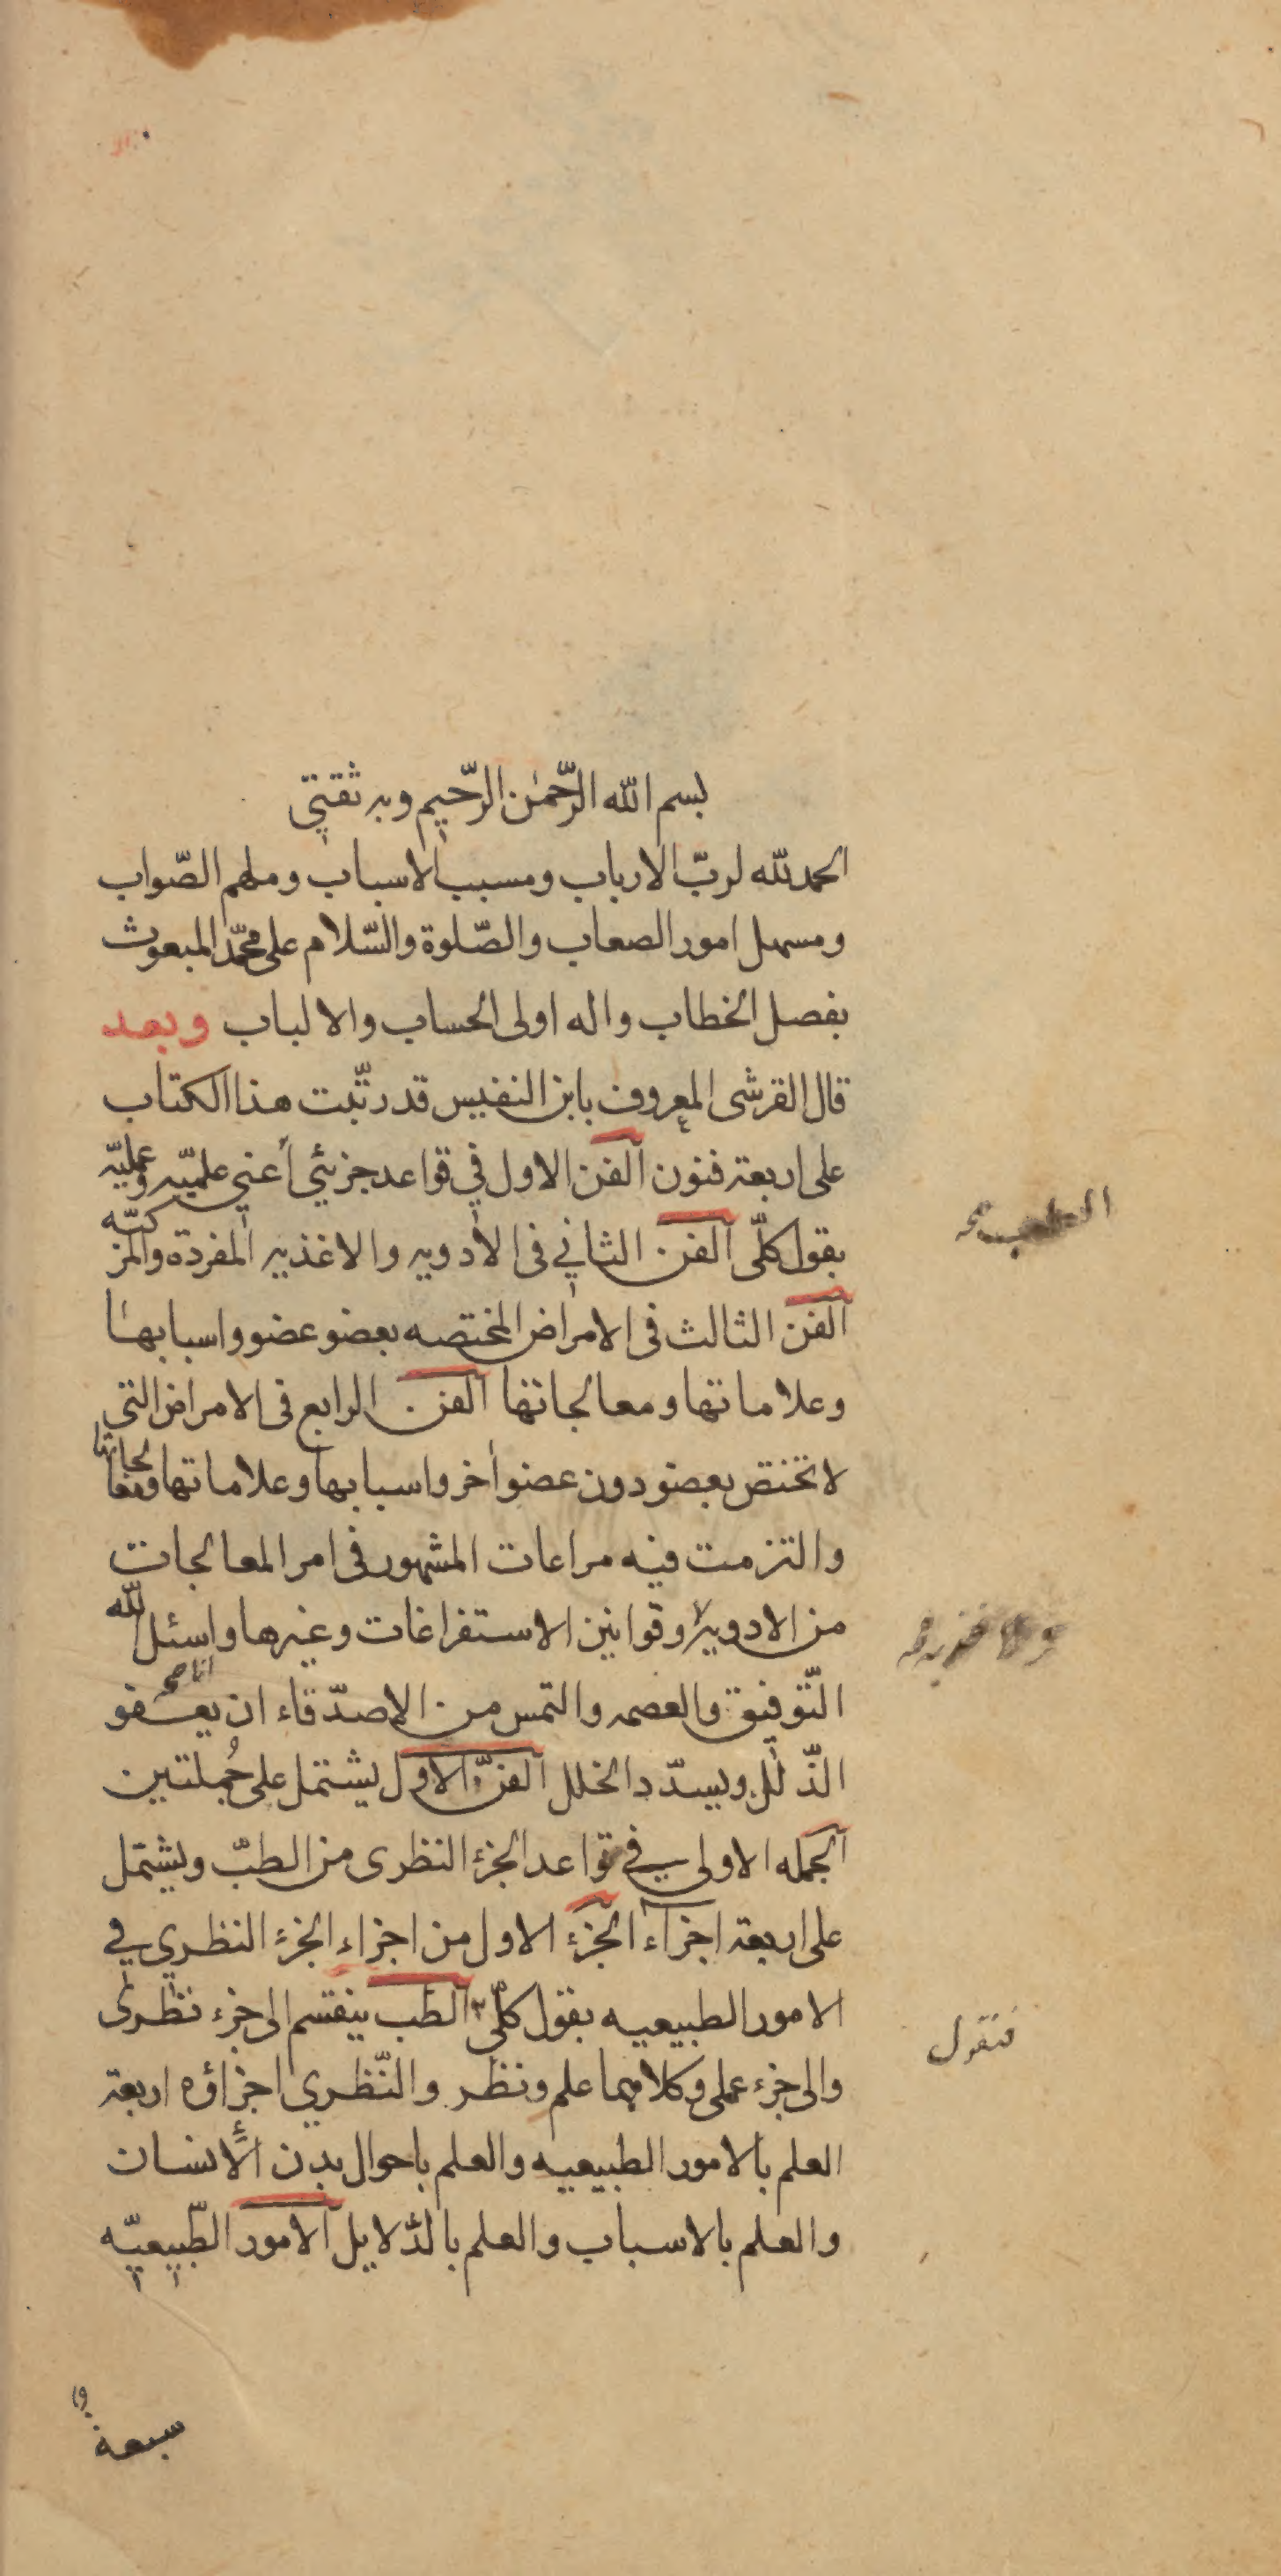 بسم الله الرّحمٰن الرّحيم وبه ثقتى
الحمد لله لربّ الارباب ومسبب الاسباب وملهم الصّواب
ومسهل امور الصعاب والصّلوة والسّلام على محمّد المبعوث
بفصل الخطاب واله اولى الحساب والالباب وبعد
قال القرشى المعروف بابن النفيس قد رتّبت هذا الكتاب
على اربعة فنون الفن الاول في قواعد جزئي أعني علميّه وعمليّه
الطب صح
بقول كلّى الفن الثاني فى الأدويه والاغذيه المفردة والمركبّه
الفن الثالث فى الامراض المختصه بعضو عضو واسبابها
وعلاماتها ومعالجاتها الفن الرابع فى الامراض التى
لا تختص بعضو دون عضو أخر واسبابها وعلاماتها ومعالجاتها
والتزمت فيه مراعات المشهور فى امر المعالجات
من الادويه وقوانين الاستفراغات وغيرها واسئل الله
التّوفيق والعصمه والتمس من الاصدّقاء ان يعفو
الذّلل ويسدّد الخلل الفنّ الاول يشتمل على جُملتين
الجمله الاولى في قواعد الجزء النظرى من الطبّ ويشتمل
على اربعة اجزآء الجزء الاول من اجزاء الجزء النظري في
الامور الطبيعيه بقول كلّى الطب ينقسم الى جزء نظرى
فنقول
والى جزء عملى وكلاهما علم ونظر والنّظري اجزاؤه اربعة
العلم بالامور الطبيعيه والعلم باحوال بدن الأنسان
والعلم بالاسباب والعلم بالدّلايل الامور الطّبيعيّه
سبعة